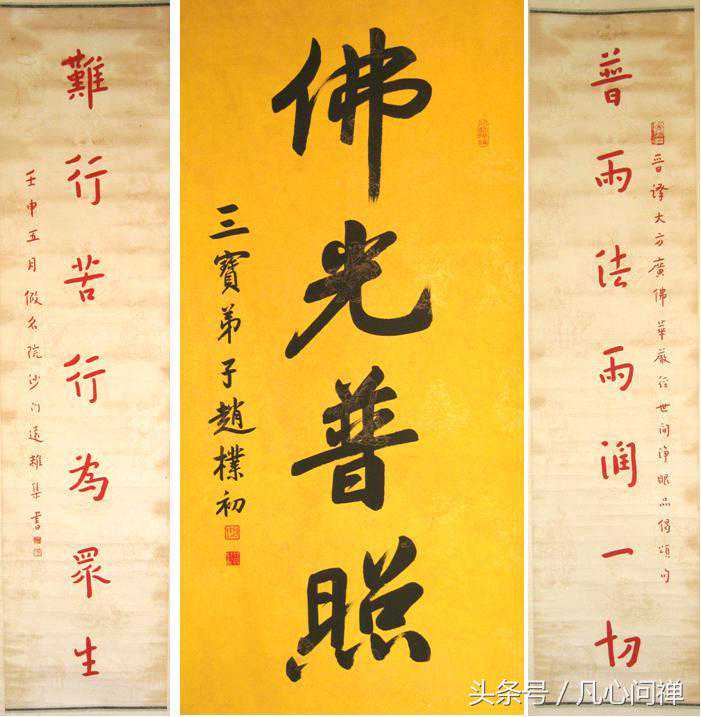 晉譯大方廣佛華嚴經世間淨眼品偈頌句
普雨法雨潤一切
佛光普照
三寶弟子趙樸初
難行苦行為眾生
壬申五月假名院沙門遠離集書
头条号 / 凡心问禅